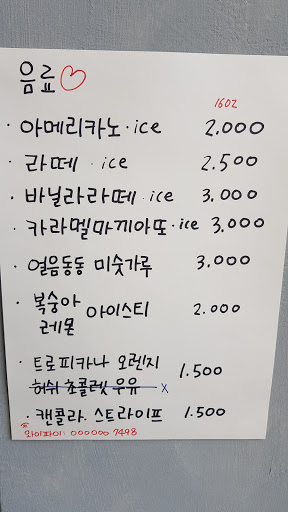 음료♡
16oz
· 아메리카노 · ice 2.000
· 라떼 · ice 2.500
· 바닐라라떼 · ice 3.000
· 카라멜마끼아또 · ice 3.000
· 얼음동동 미숫가루 3.000
· 복숭아
레몬 아이스티 2.000
· 트로피카나 오렌지 1.500
허쉬 초콜렛 우유 x
· 캔콜라. 스트라이프 1.500
와이파이: 000000 7493